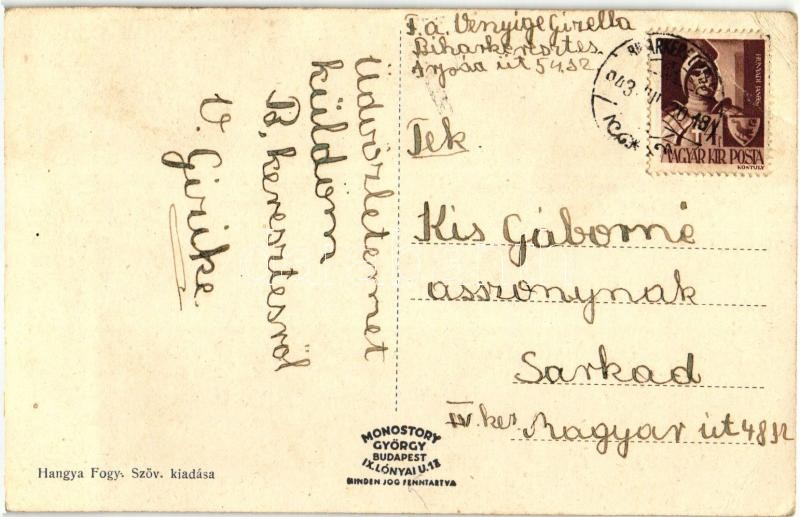 F.a. Venyige Gizella
Biharkeresztes
út 54. sz
Tek.
Kis Gáborné
asszonynak
Sarkad
IV. ker Magyar út 48 sz
Üdvözletemet
küldöm
B, keresztesről
V. Gizike
MAGYAR KIR. POSTA
MONOSTORY
GYÖRGY
BUDAPEST
IX. LÓNYAI U. 18
MINDEN JOG FENNTARTVA
Hangya Fogy. Szöv. kiadása